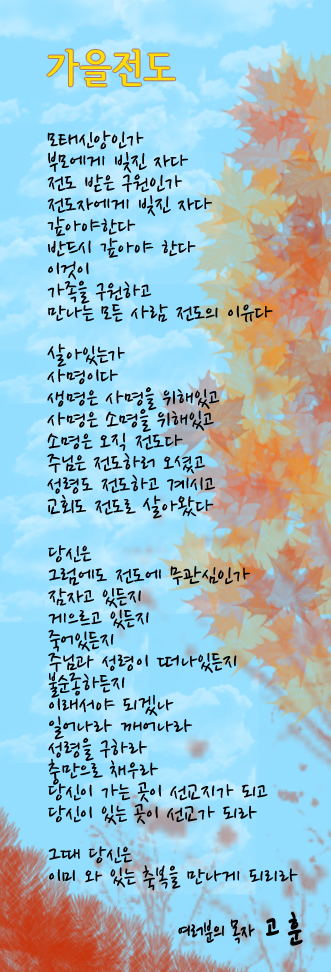 가을전도
모태신앙인가
부모에게 빚진 자다
전도 받은 구원인가
전도자에게 빚진 자다
갚아야한다
반드시 갚아야 한다
이것이
가족을 구원하고
만나는 모든 사람 전도의 이유다
살아있는가
사명이다
생명은 사명을 위해있고
사명은 소명을 위해있고
소명은 오직 전도다
주님은 전도하러 오셨고
성령도 전도하고 계시고
교회도 전도로 살아왔다
당신은
그럼에도 전도에 무관심인가
잠자고 있든지
게으르고 있든지
죽어있든지
주님과 성령이 떠나있든지
불순종하든지
이래서야 되겠나
일어나라 깨어나라
성령을 구하라
충만으로 채우라
당신이 가는 곳이 선교지가 되고
당신이 있는 곳이 선교가 되라
그때 당신은
이미 와 있는 축복을 만나게 되리라
여러분의 목자 고 훈